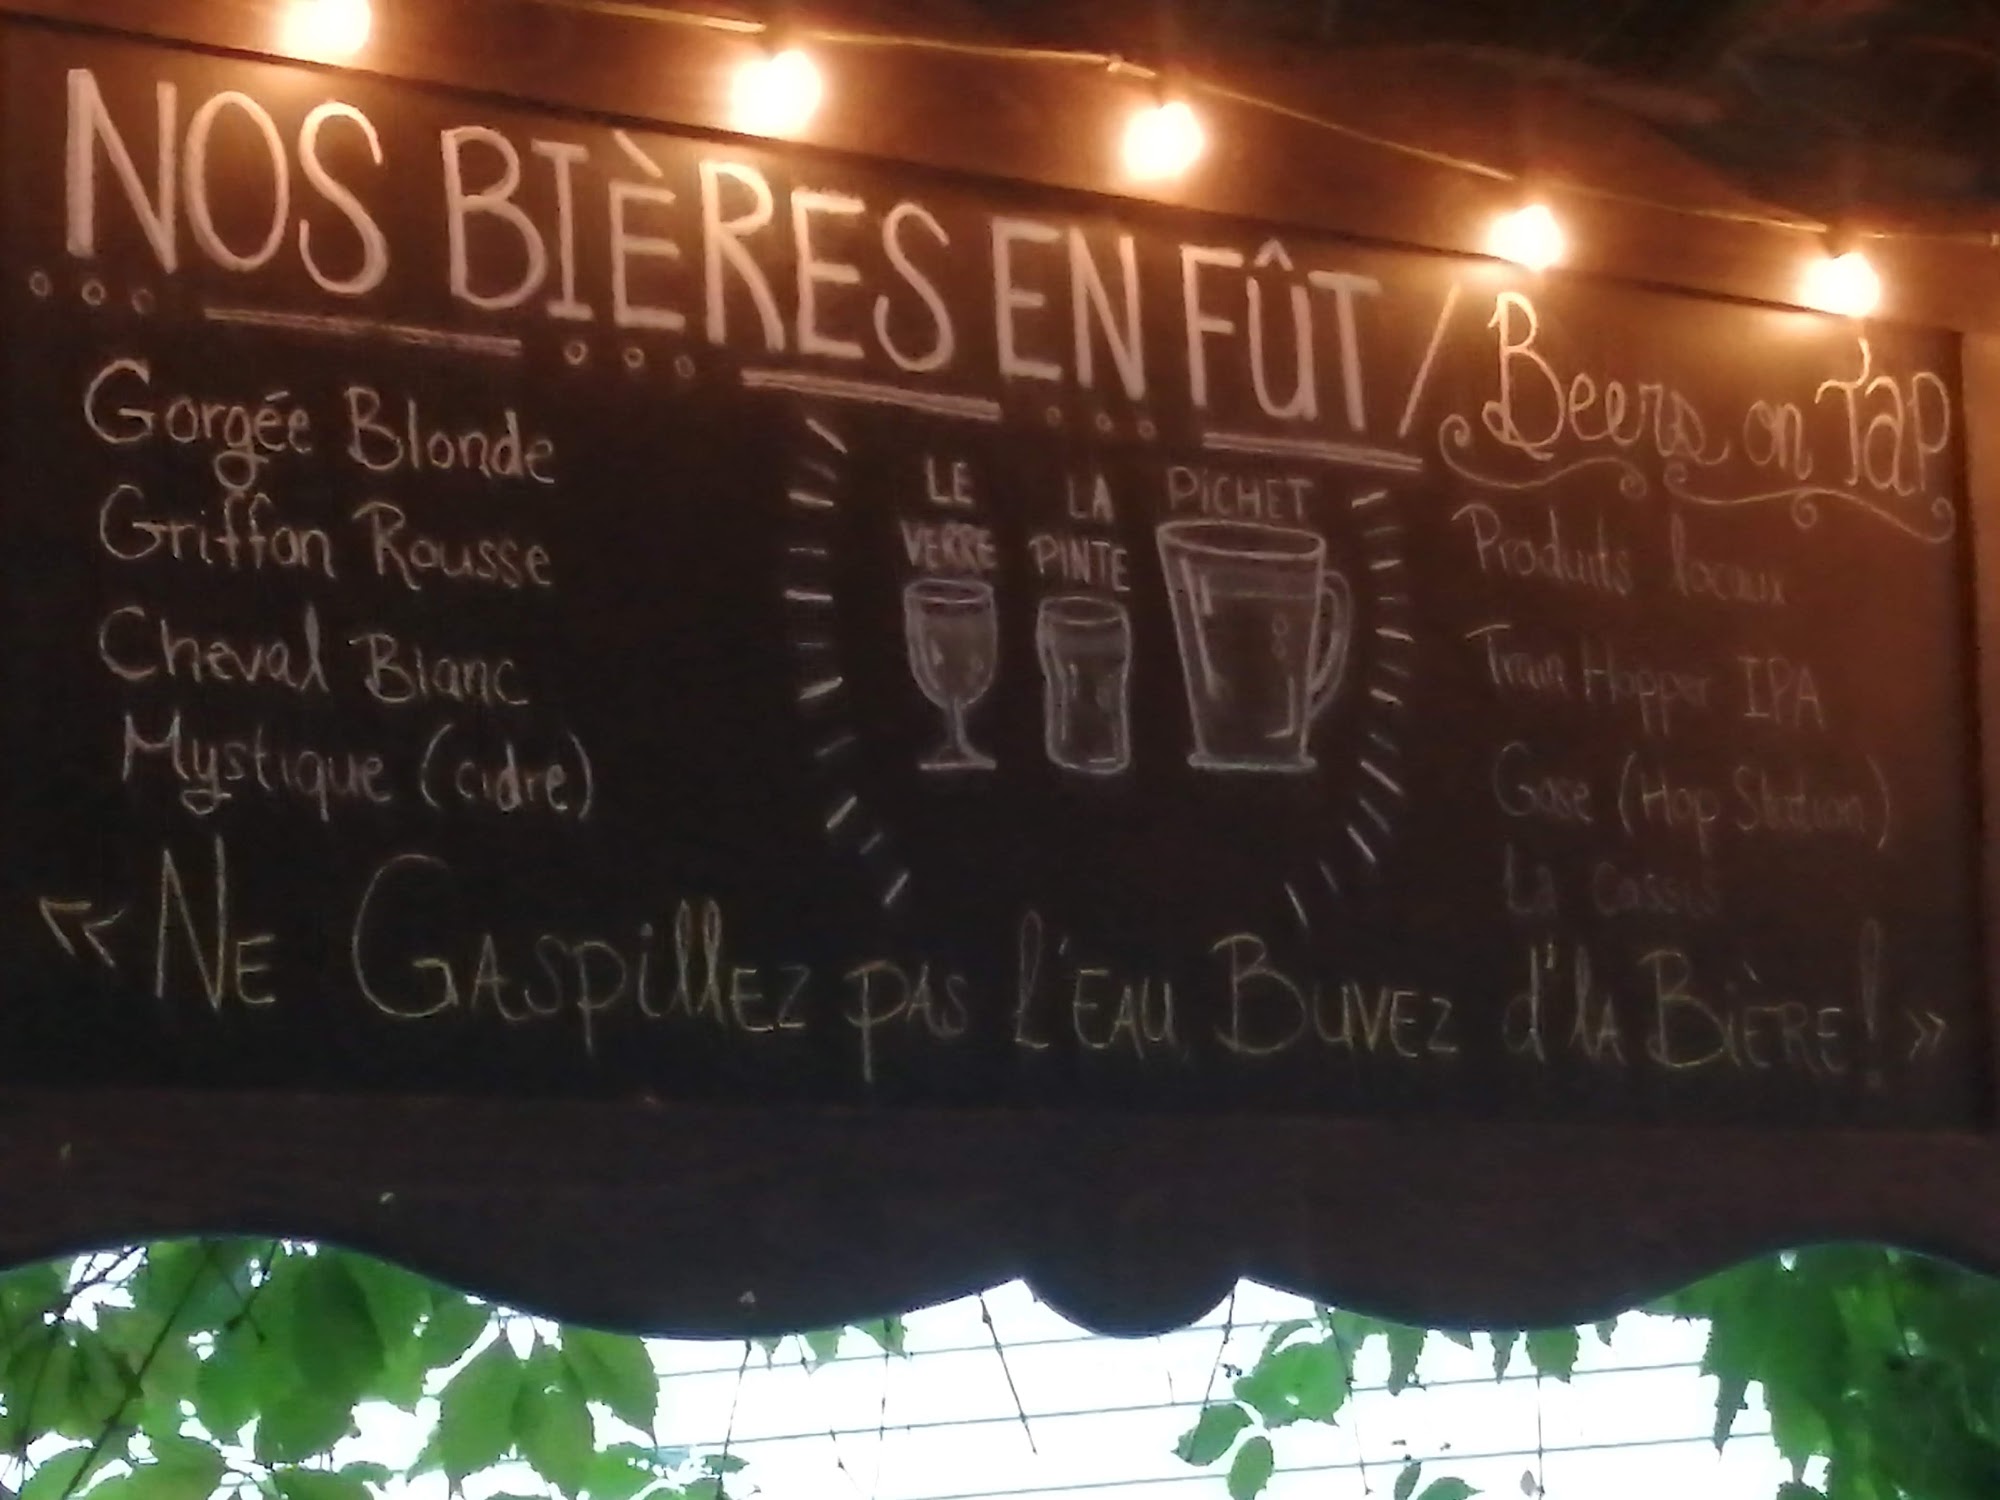 NOS BIÈRES EN FÛT / Beers on Tap
Gorgée Blonde
Griffon Rousse
Cheval Blanc
Mystique (cidre)
LE
VERRE
LA
PINTE
PICHET
Produits locaux
Train Hopper IPA
Gose (Hop Station)
La Cassis
« NE GASPillEZ PAS l'EAU BUVEZ d'lA BIÈRE! »